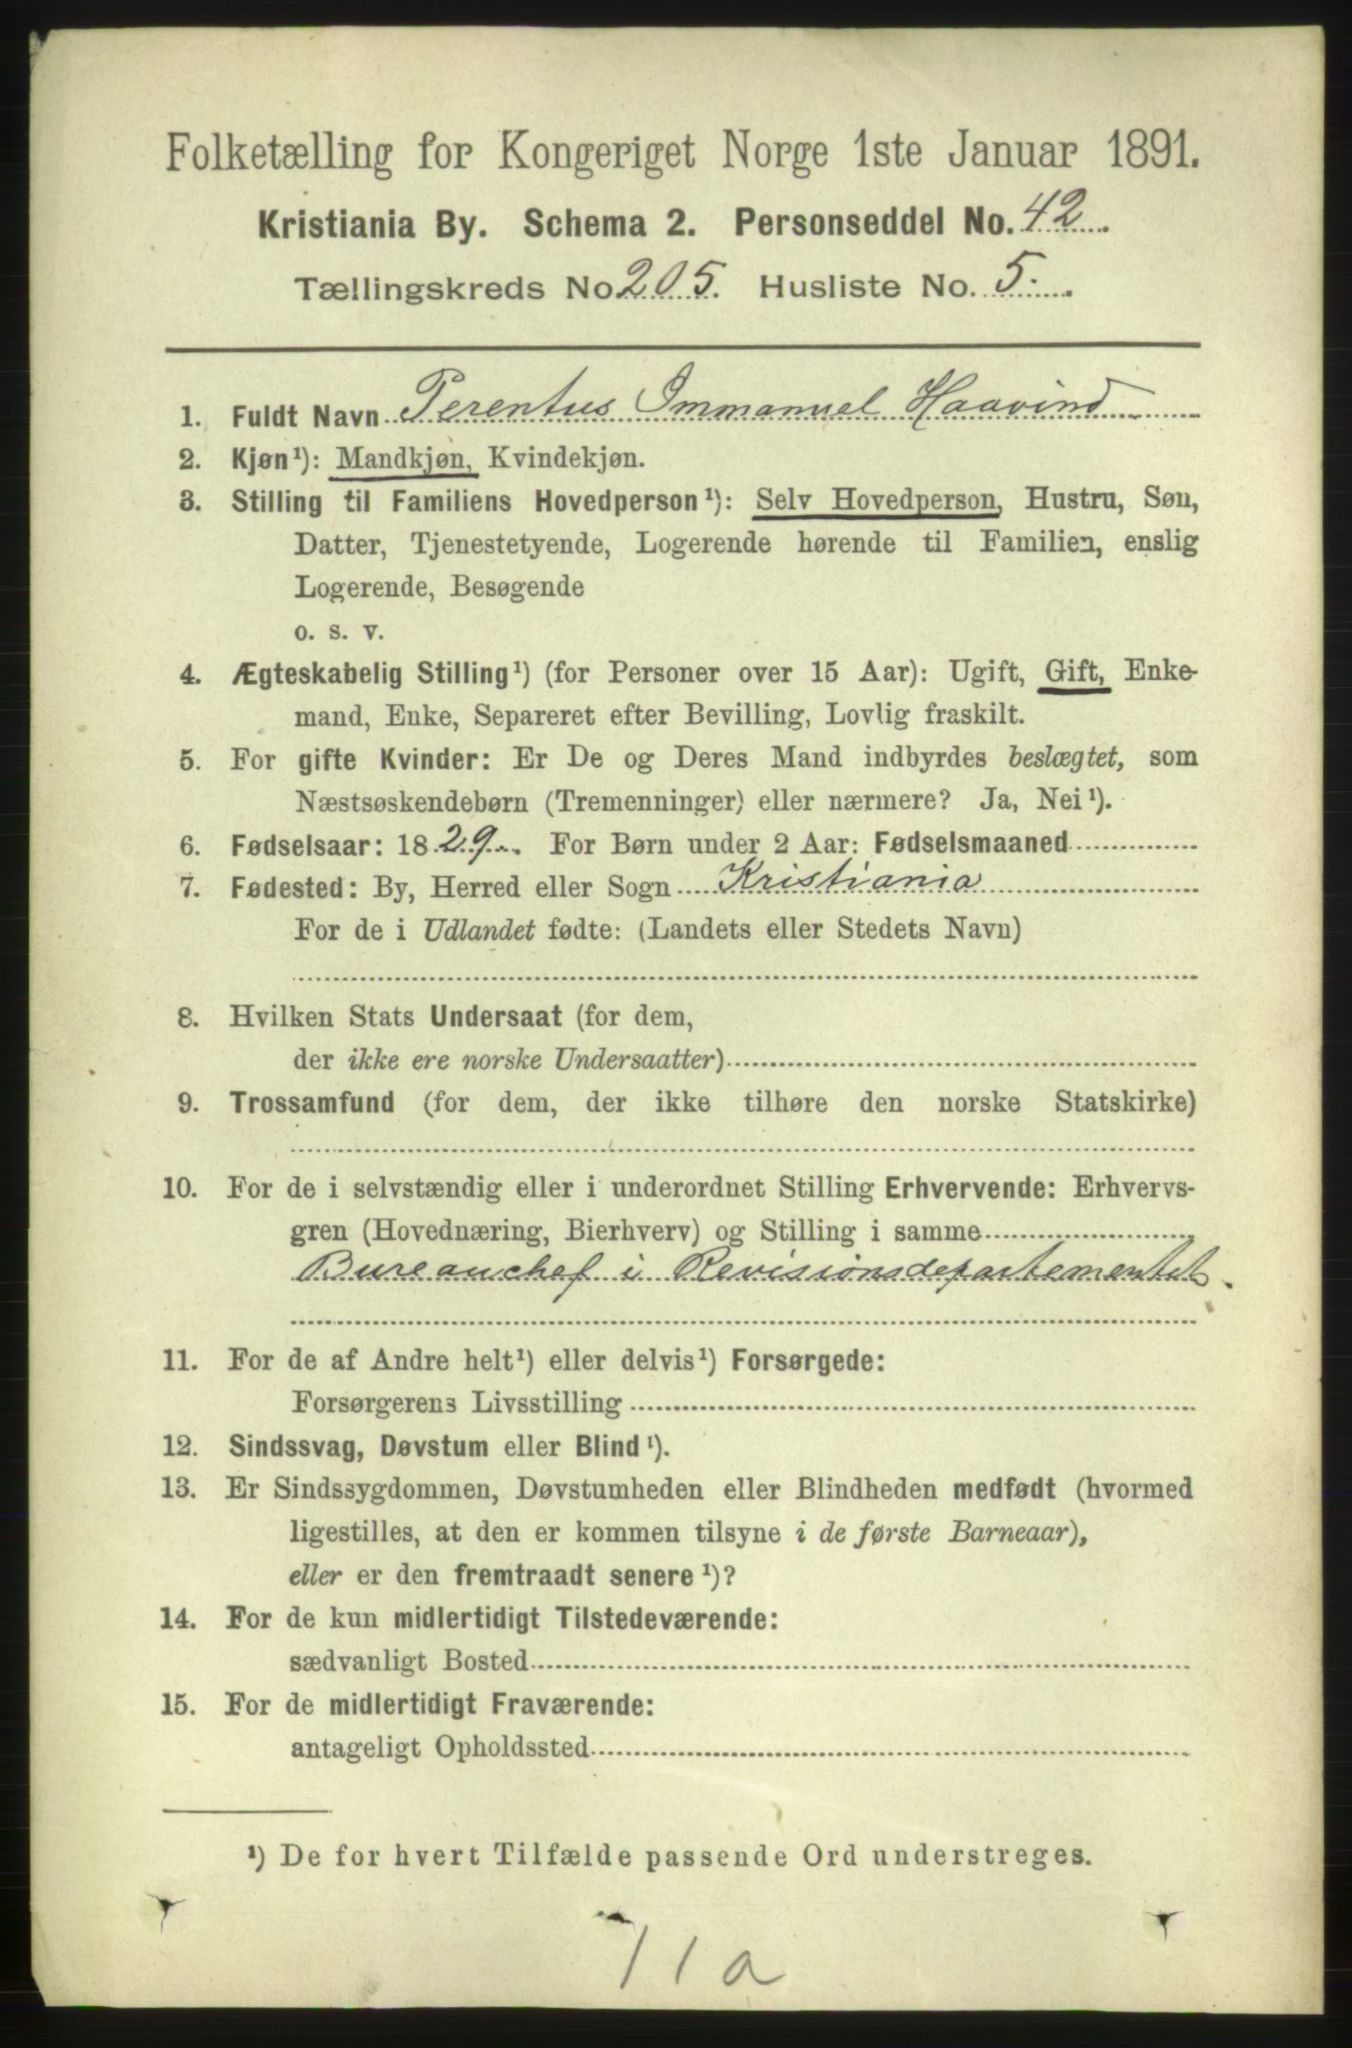 Folketælling for Kongeriget Norge 1ste Januar 1891.
Kristiania By. Schema 2. Personseddel No. 42
Tællingskreds No 205. Husliste No. 5.
1. Fuldt Navn Terentus Immanuel Haavind
2. Kjøn¹): Mandkjøn, Kvindekjøn.
3. Stilling til Familiens Hovedperson¹): Selv Hovedperson, Hustru, Søn,
Datter, Tjenestetyende, Logerende hørende til Familien, enslig
Logerende, Besøgende
o. s. v.
4. Ægteskabelig Stilling¹) (for Personer over 15 Aar): Ugift, Gift, Enke-
mand, Enke, Separeret efter Bevilling, Lovlig fraskilt.
5. For gifte Kvinder: Er De og Deres Mand indbyrdes beslægtet, som
Næstsøskendebørn (Tremenninger) eller nærmere? Ja, Nei¹).
6. Fødselsaar: 1829. For Børn under 2 Aar: Fødselsmaaned
7. Fødested: By, Herred eller Sogn Kristiania
For de i Udlandet fødte: (Landets eller Stedets Navn)
8. Hvilken Stats Undersaat (for dem,
der ikke ere norske Undersaatter)
9. Trossamfund (for dem, der ikke tilhøre den norske Statskirke)
10. For de i selvstændig eller i underordnet Stilling Erhvervende: Erhvervs-
gren (Hovednæring, Bierhverv) og Stilling i samme
Bureauchef i Revisionsdepartementet.
11. For de af Andre helt¹) eller delvis¹) Forsørgede:
Forsørgerens Livsstilling
12. Sindssvag, Døvstum eller Blind¹).
13. Er Sindssygdommen, Døvstumheden eller Blindheden medfødt (hvormed
ligestilles, at den er kommen tilsyne i de første Barneaar),
eller er den fremtraadt senere¹)?
14. For de kun midlertidigt Tilstedeværende:
sædvanligt Bosted
15. For de midlertidigt Fraværende:
antageligt Opholdssted
¹) De for hvert Tilfælde passende Ord understreges.
71a